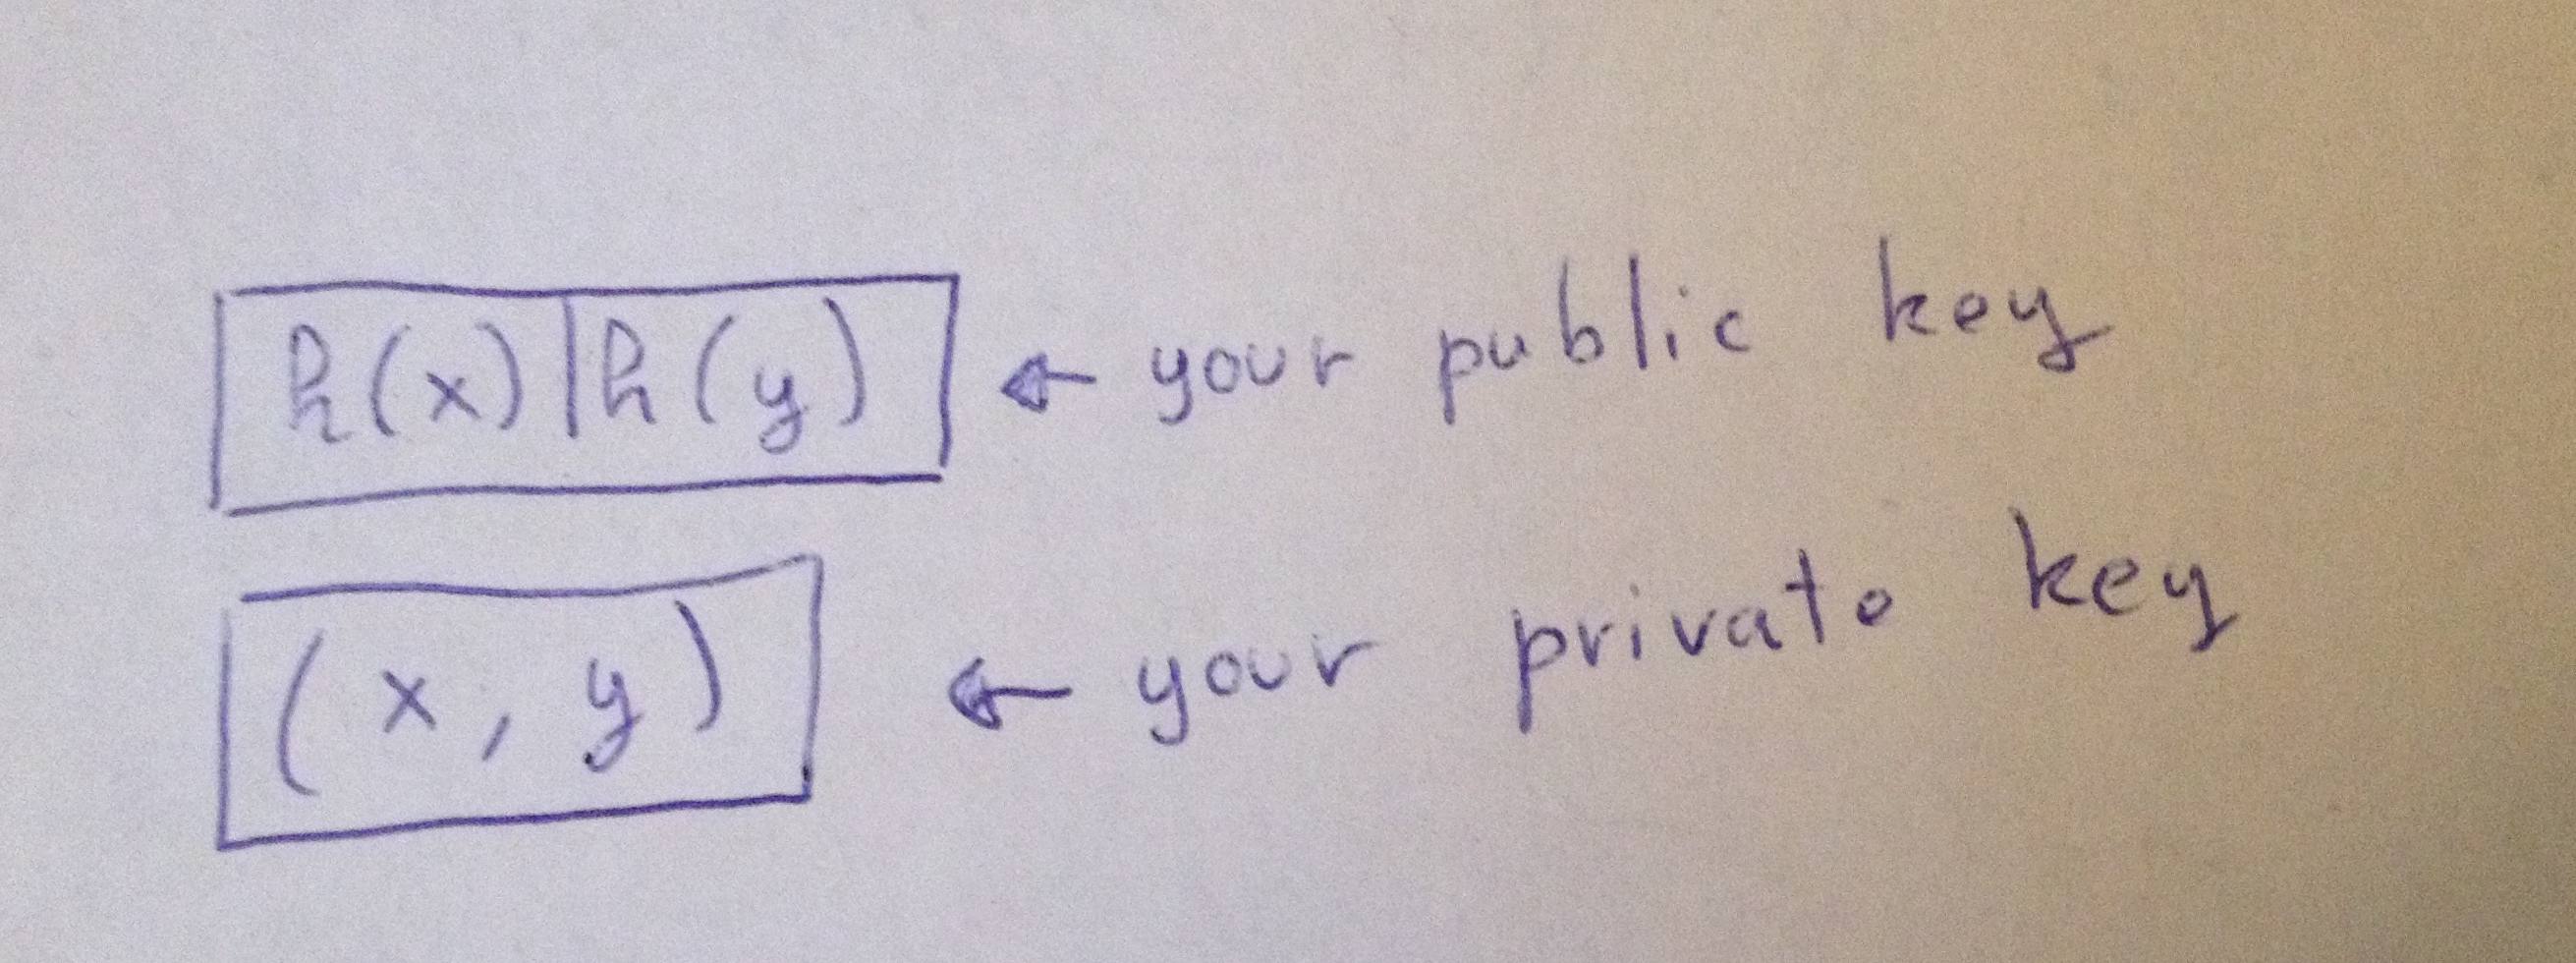 h(x)|h(y) ← your public key
(x, y) ← your private key